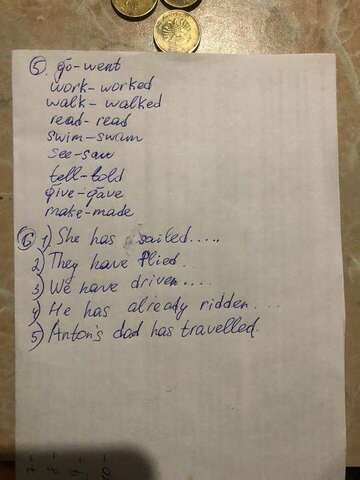 5. go-went
work-worked
walk-walked
read-read
swim-swam
see-saw
tell-told
give-gave
make-made
6 1) She has sailed.....
2) They have flied.
3) We have driven....
4) He has already ridden....
5) Anton's dad has travelled.